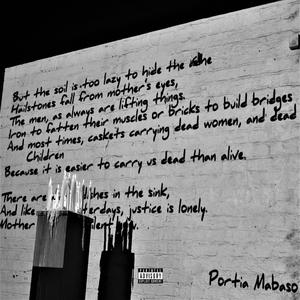 But the soil is too lazy to hide the
Hailstones fall from mother's eyes,
The men, as always are lifting things.
Iron to fatten their muscles or bricks to build bridges
And most times, caskets carrying dead women, and dead
Children
Because it is easier to carry us dead than alive.
There are dishes in the sink,
And like yesterdays, justice is lonely.
Mother
PARENTAL
ADVISORY
EXPLICIT CONTENT
Portia Mabaso